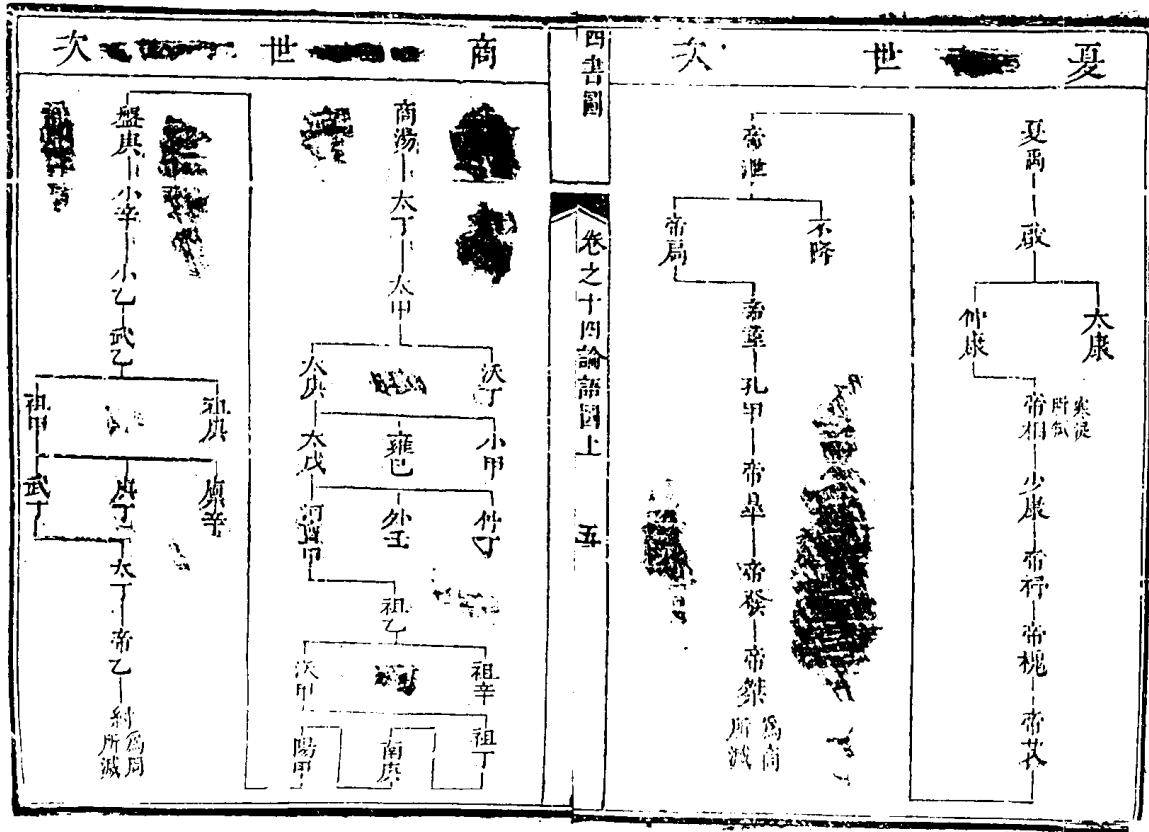 夏世次
夏禹
啟
太康
仲康
帝相
寒浞
所弒
少康
帝杼
帝槐
帝芒
帝泄
不降
帝扃
帝堇
孔甲
帝皐
帝發
帝桀
為商
所滅
四書圖
卷之十四論語圖上
五
商世次
商湯
太丁
太甲
沃丁
太庚
小甲
雍巳
太戊
仲丁
外壬
河亶甲
祖乙
祖辛
沃甲
祖丁
南庚
陽甲
盤庚
小辛
小乙
武乙
祖庚
祖甲
廩辛
庚丁
武丁
太丁
帝乙
紂
為周
所滅